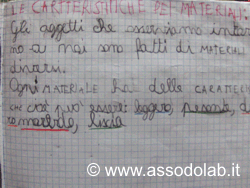 LE CARATTERISTICHE DEI MATERIALI
Gli oggetti che osserviamo intor
no a noi sono fatti di MATERIALI
diversi.
Ogni MATERIALE ha delle CARATTERI
può essere: leggero, pesante, d
morbido, liscio
© www.assodolab.it